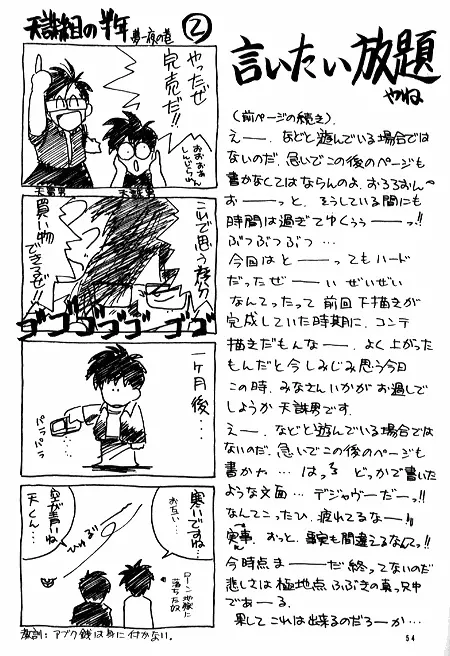 天誅組の半年
夢一夜の巻
②
やったぜ
完売だ!!
おおおぉ
しんじられん
天誅男
天誅男
これで思う存分
買い物
できるぜ!!
ゴゴゴゴゴ ゴゴ
一ヶ月後・・・
パラ
パラ
寒いですね…
お互い…
空が青いね
天くん…
ひゅるる
ローン地獄に
落ちた奴
教訓:アブク銭は身に付かない。
言いたい放題
やね
(前ページの続き).
えー――. などと遊んでいる場合では
ないのだ. 急いでこの後のページも
書かなくてはならんのよ. おろろおん〜
お――っと. そうしている間にも
時間は過ぎてゆくぅぅ――っ!!
ぶつぶつぶつ …
今回はと――ってもハード
だったぜ――ぃ ぜいぜい
なんてったって 前回下描きが
完成していた時期に. コンテ
描きだもんな――. よく上がった
もんだと今しみじみ思う今日
この時. みなさんいかがお過しで
しょうか 天誅男です.
え――. などと遊んでいる場合では
ないのだ. 急いでこの後のページも
書かわ … はっ どっかで書いた
ような文面 … デジャヴーだーっ!!
なんてこったひ. 疲れてるなー!!
実事. おっと. 事実も間違えるなんてっ!!
今時点ま――だ終ってないのだ
悲しさは極地点ふぶきの真っ只中
であ――る.
果して これは出来るのだろーか …
54